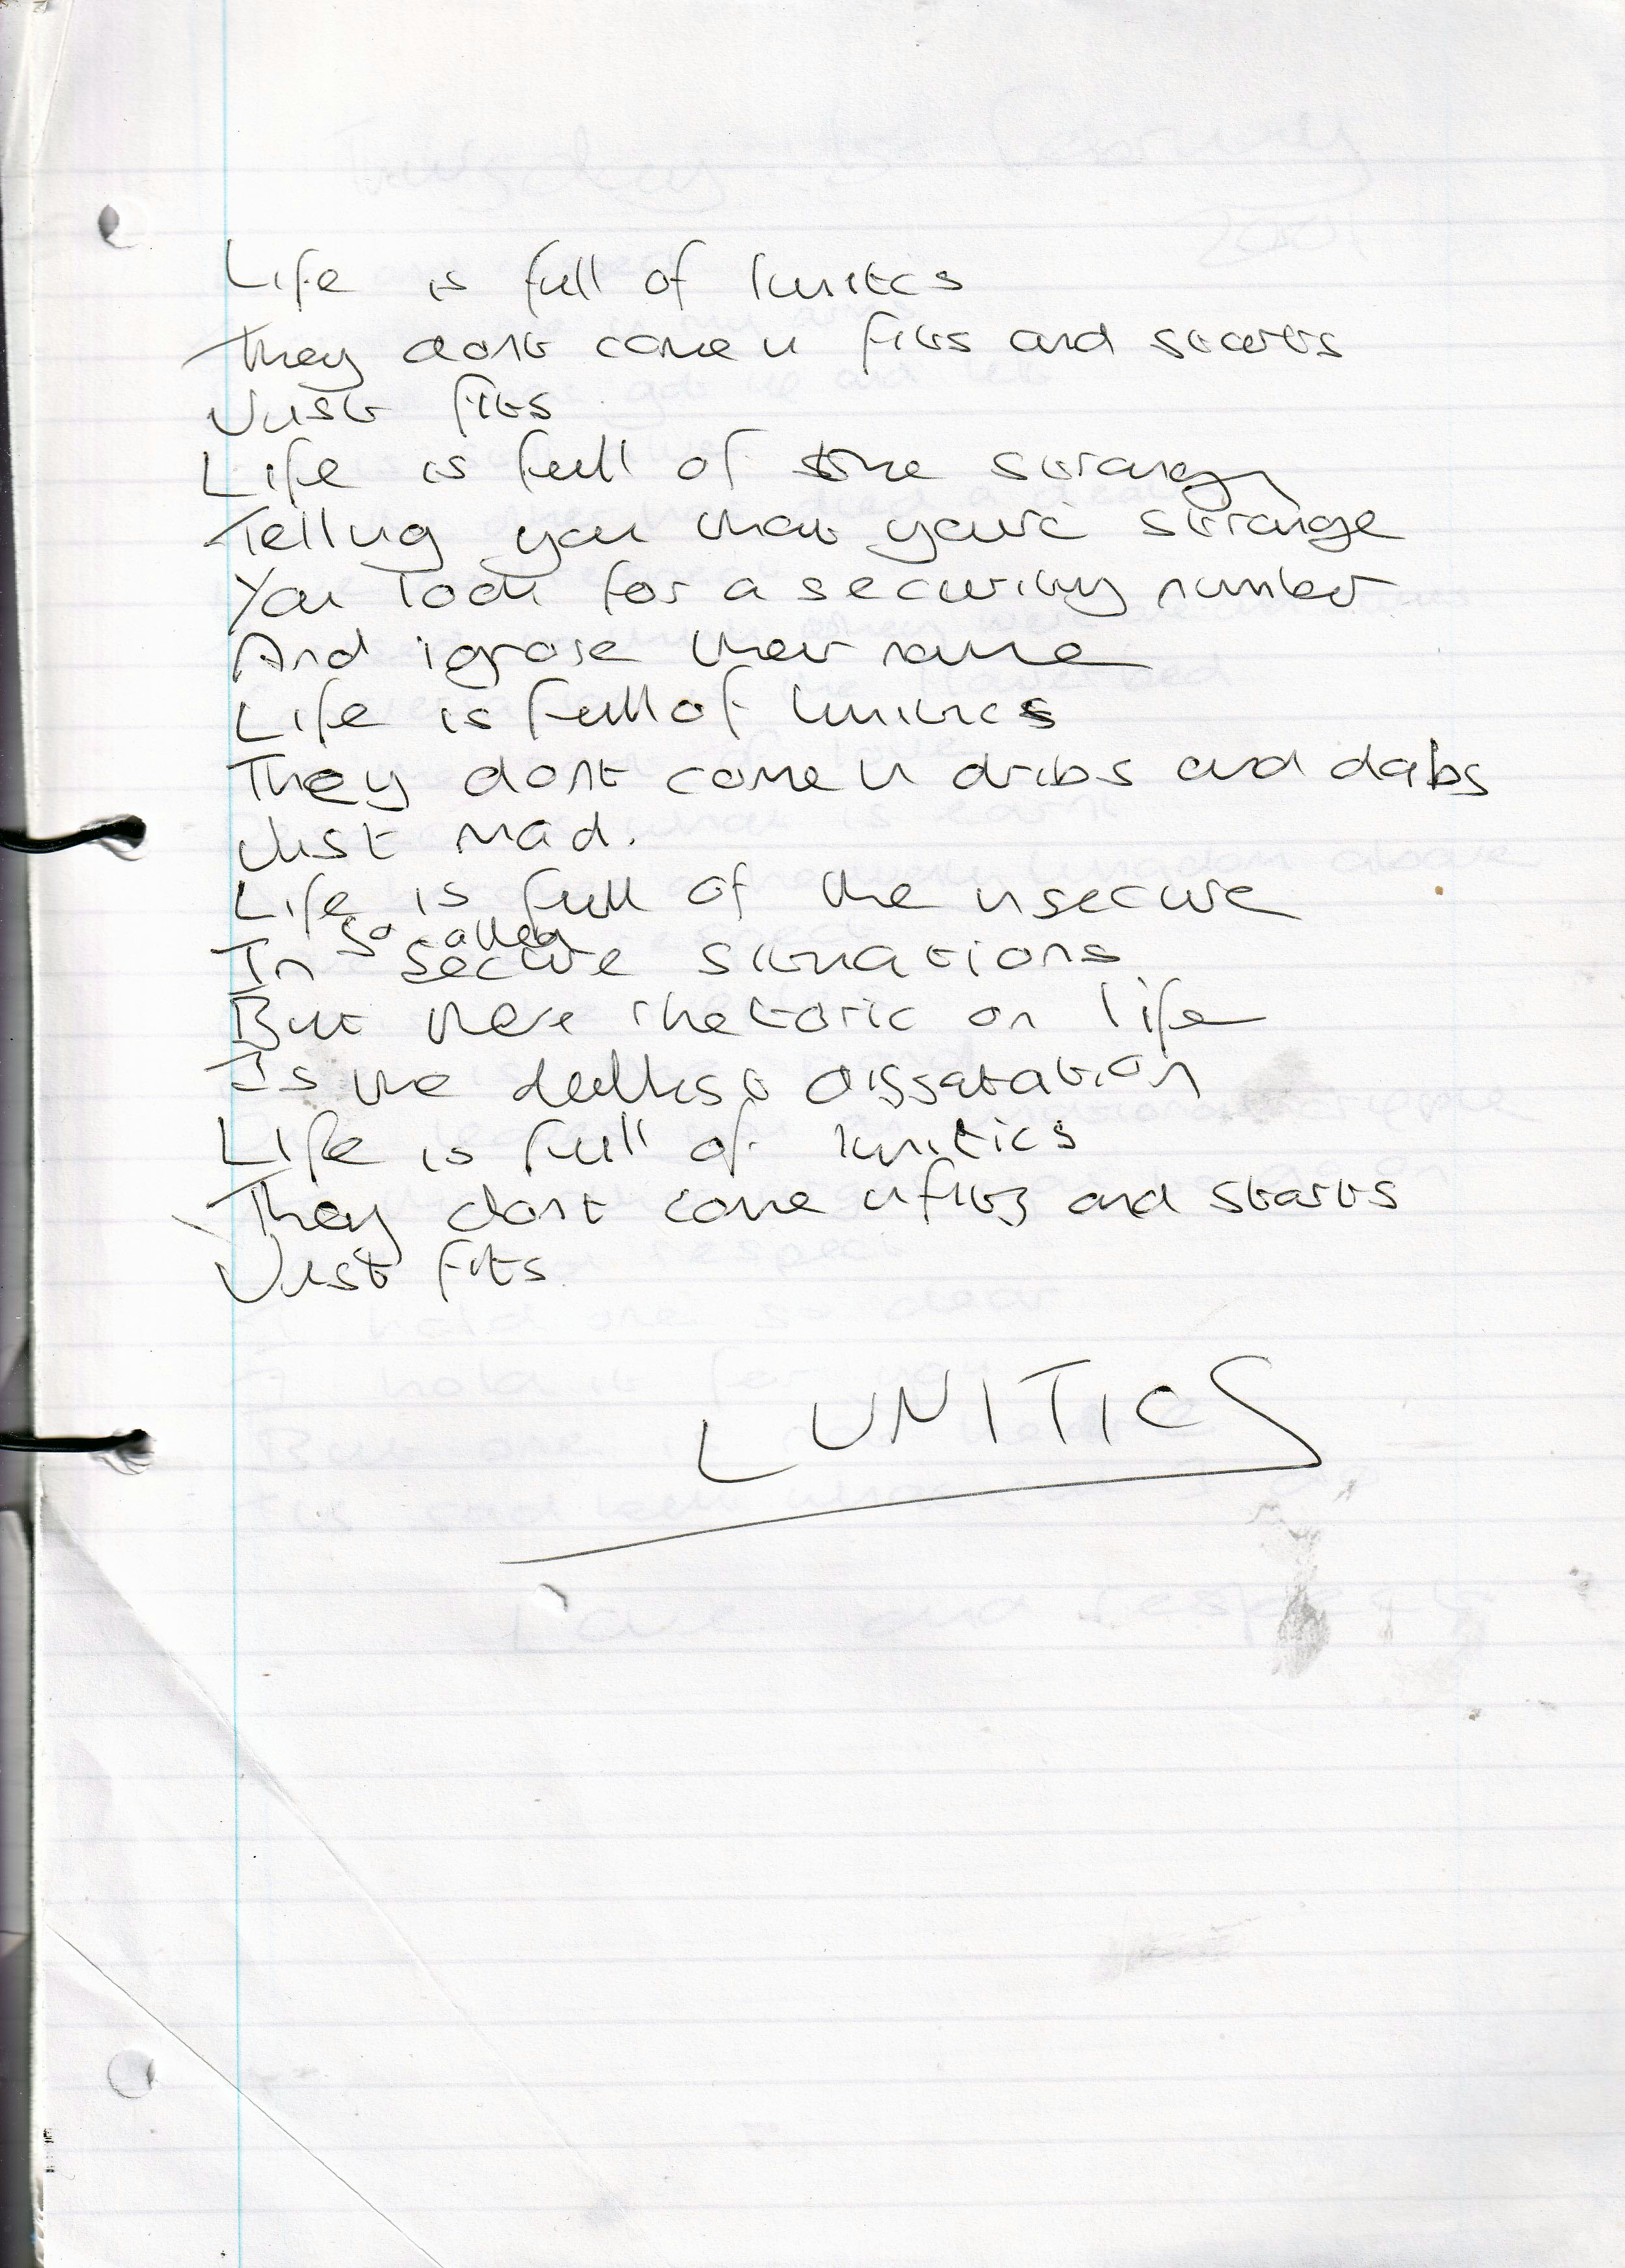 Life is full of lunitcs
They dont come in fits and starts
Just fits
Life is full of the strange
Telling you that you're strange
You look for a security number
And ignore their name
Life is full of lunitics
They dont come in dribs and dabs
Just mad.
Life is full of the insecure
so called
In secure situations
But there rhetoric on life
Is the dullest dissatation
Life is full of lunitics
They dont come in fits and starts
Just fits
LUNITICS